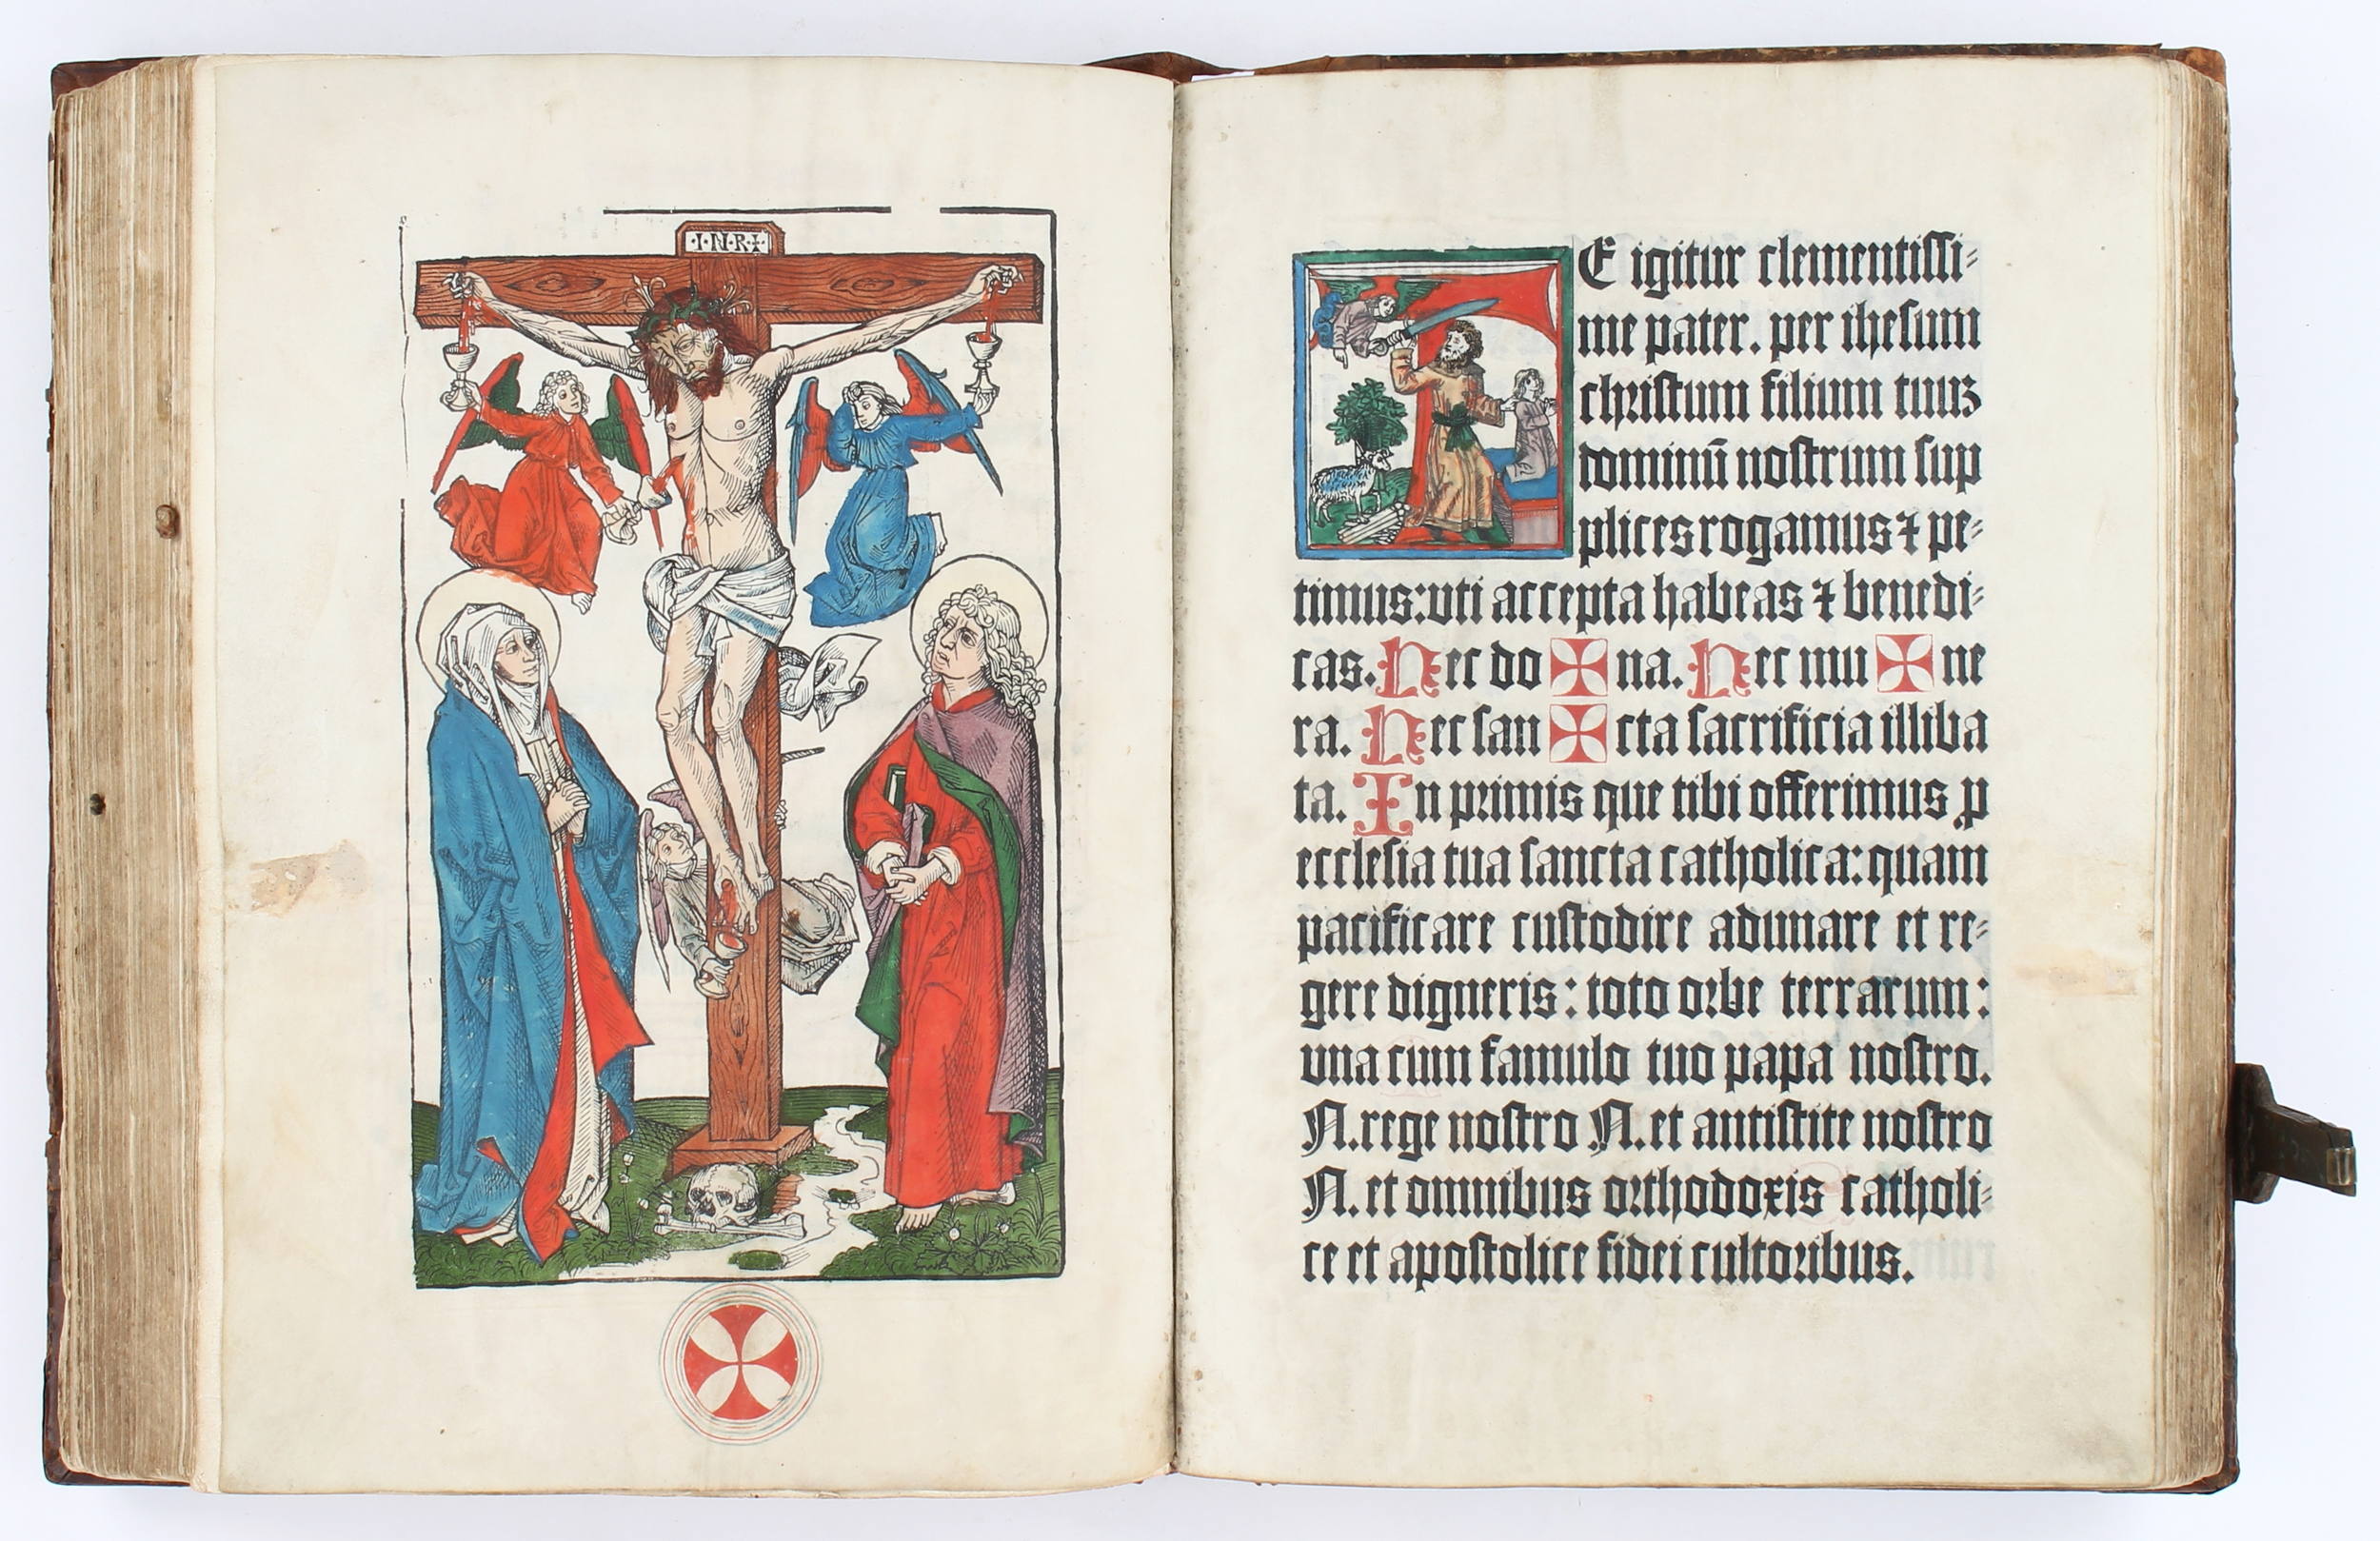 ·I·N·R·I·
E igitur clementissi⸗
me pater. per ihesum
christum filium tuuꝫ
dominū nostrum sup
plices rogamus ⁊ pe⸗
timus: vti accepta habeas ⁊ benedi⸗
cas. Hec do ✠ na. Hec mu ✠ ne
ra. Hec san ✠ cta sacrificia illiba
ta. In primis que tibi offerimus ꝓ
ecclesia tua sancta catholica: quam
pacificare custodire adunare et re⸗
gere digneris: toto orbe terrarum:
vna cum famulo tuo papa nostro.
N. rege nostro N. et antistite nostro
N. et omnibus orthodoxis catholi⸗
ce et apostolice fidei cultoribus.